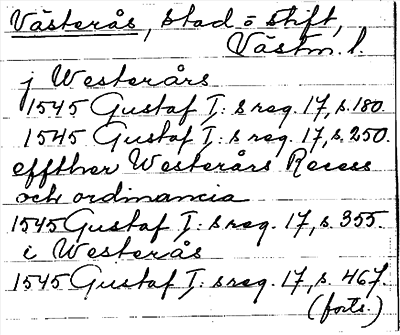 Västerås, stad o stift,
Västm. l.
j Westerårs
1545 Gustaf I: s reg. 17, s. 180.
1545 Gustaf I: s reg. 17, s. 250.
effther Westerårs Recess
och ordinancia
1545 Gustaf I: s reg. 17, s. 355.
i Westerås
1545 Gustaf I: s reg. 17, s. 467.
(forts.)